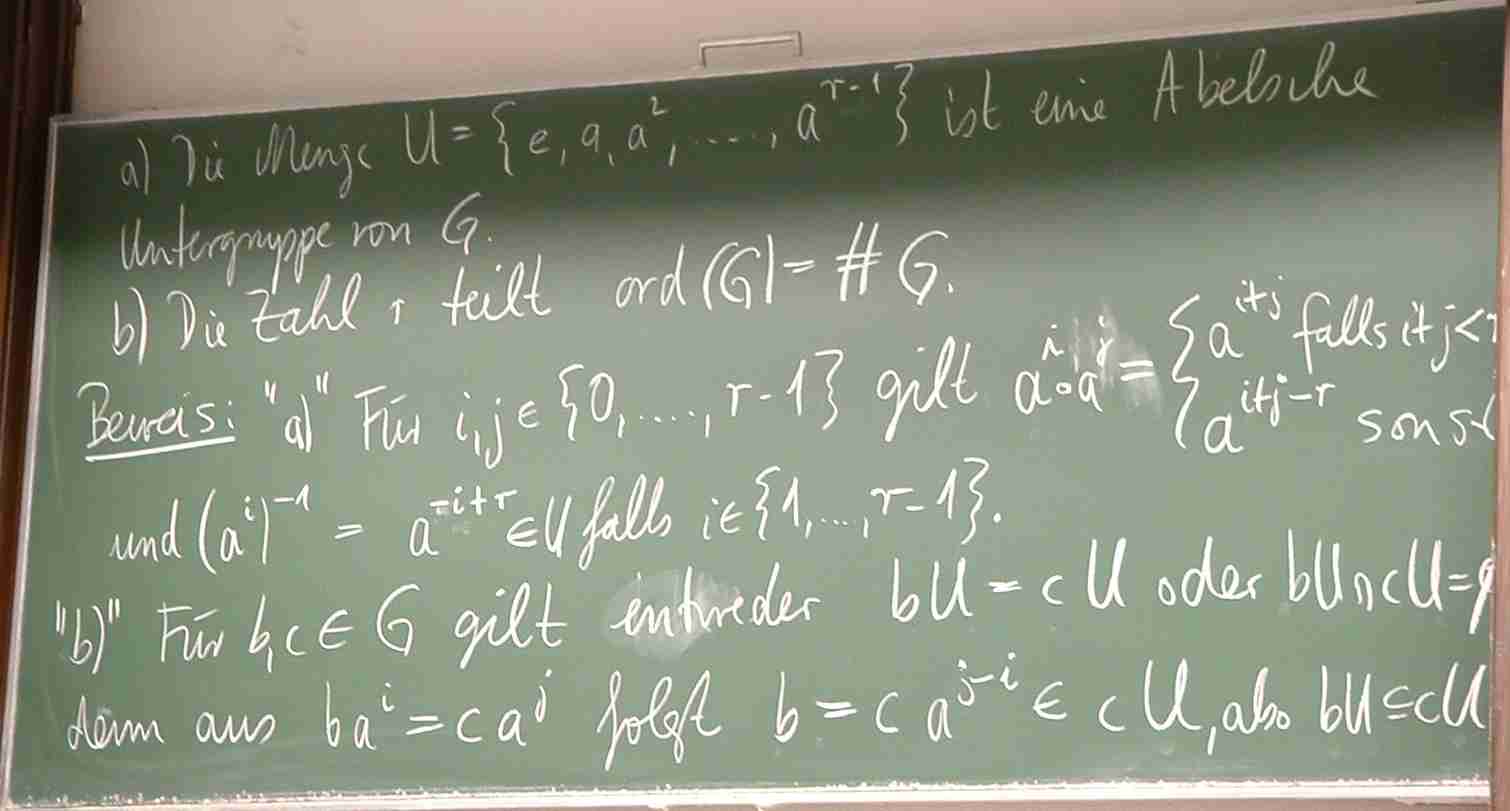 a) Die Menge U = {e, a, a², ...., a^{r-1}} ist eine Abelsche
Untergruppe von G.
b) Die Zahl r teilt ord(G) = # G.
Beweis: "a)" Für i,j ∈ {0, ...., r-1} gilt a^i ∘ a^j = { a^{i+j} falls i+j <
{ a^{i+j-r} sonst
und (a^i)^{-1} = a^{-i+r} ∈ U falls i ∈ {1, ..., r-1}.
"b)" Für b,c ∈ G gilt entweder bU = cU oder bU ∩ cU =
denn aus ba^i = ca^j folgt b = c a^{j-i} ∈ cU, also bU ⊆ cU